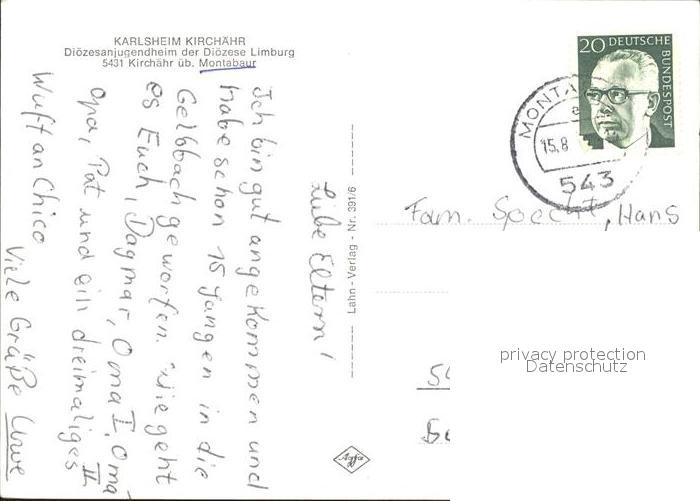 KARLSHEIM KIRCHÄHR
Diözesanjugendheim der Diözese Limburg
5431 Kirchähr üb. Montabaur
Liebe Eltern!
Ich bin gut angekommen und
habe schon 15 Jungen in die
Gelbbach geworfen. Wie geht
es Euch, Dagmar, Oma I, Oma II
Opa, Pat und ein dreimaliges
Wuft an Chico
Viele Grüße Uwe
Lahn-Verlag - Nr. 391/6
Agfa
20 DEUTSCHE
BUNDESPOST
MONTA
15.8
543
Fam. Specht, Hans
privacy protection
Datenschutz